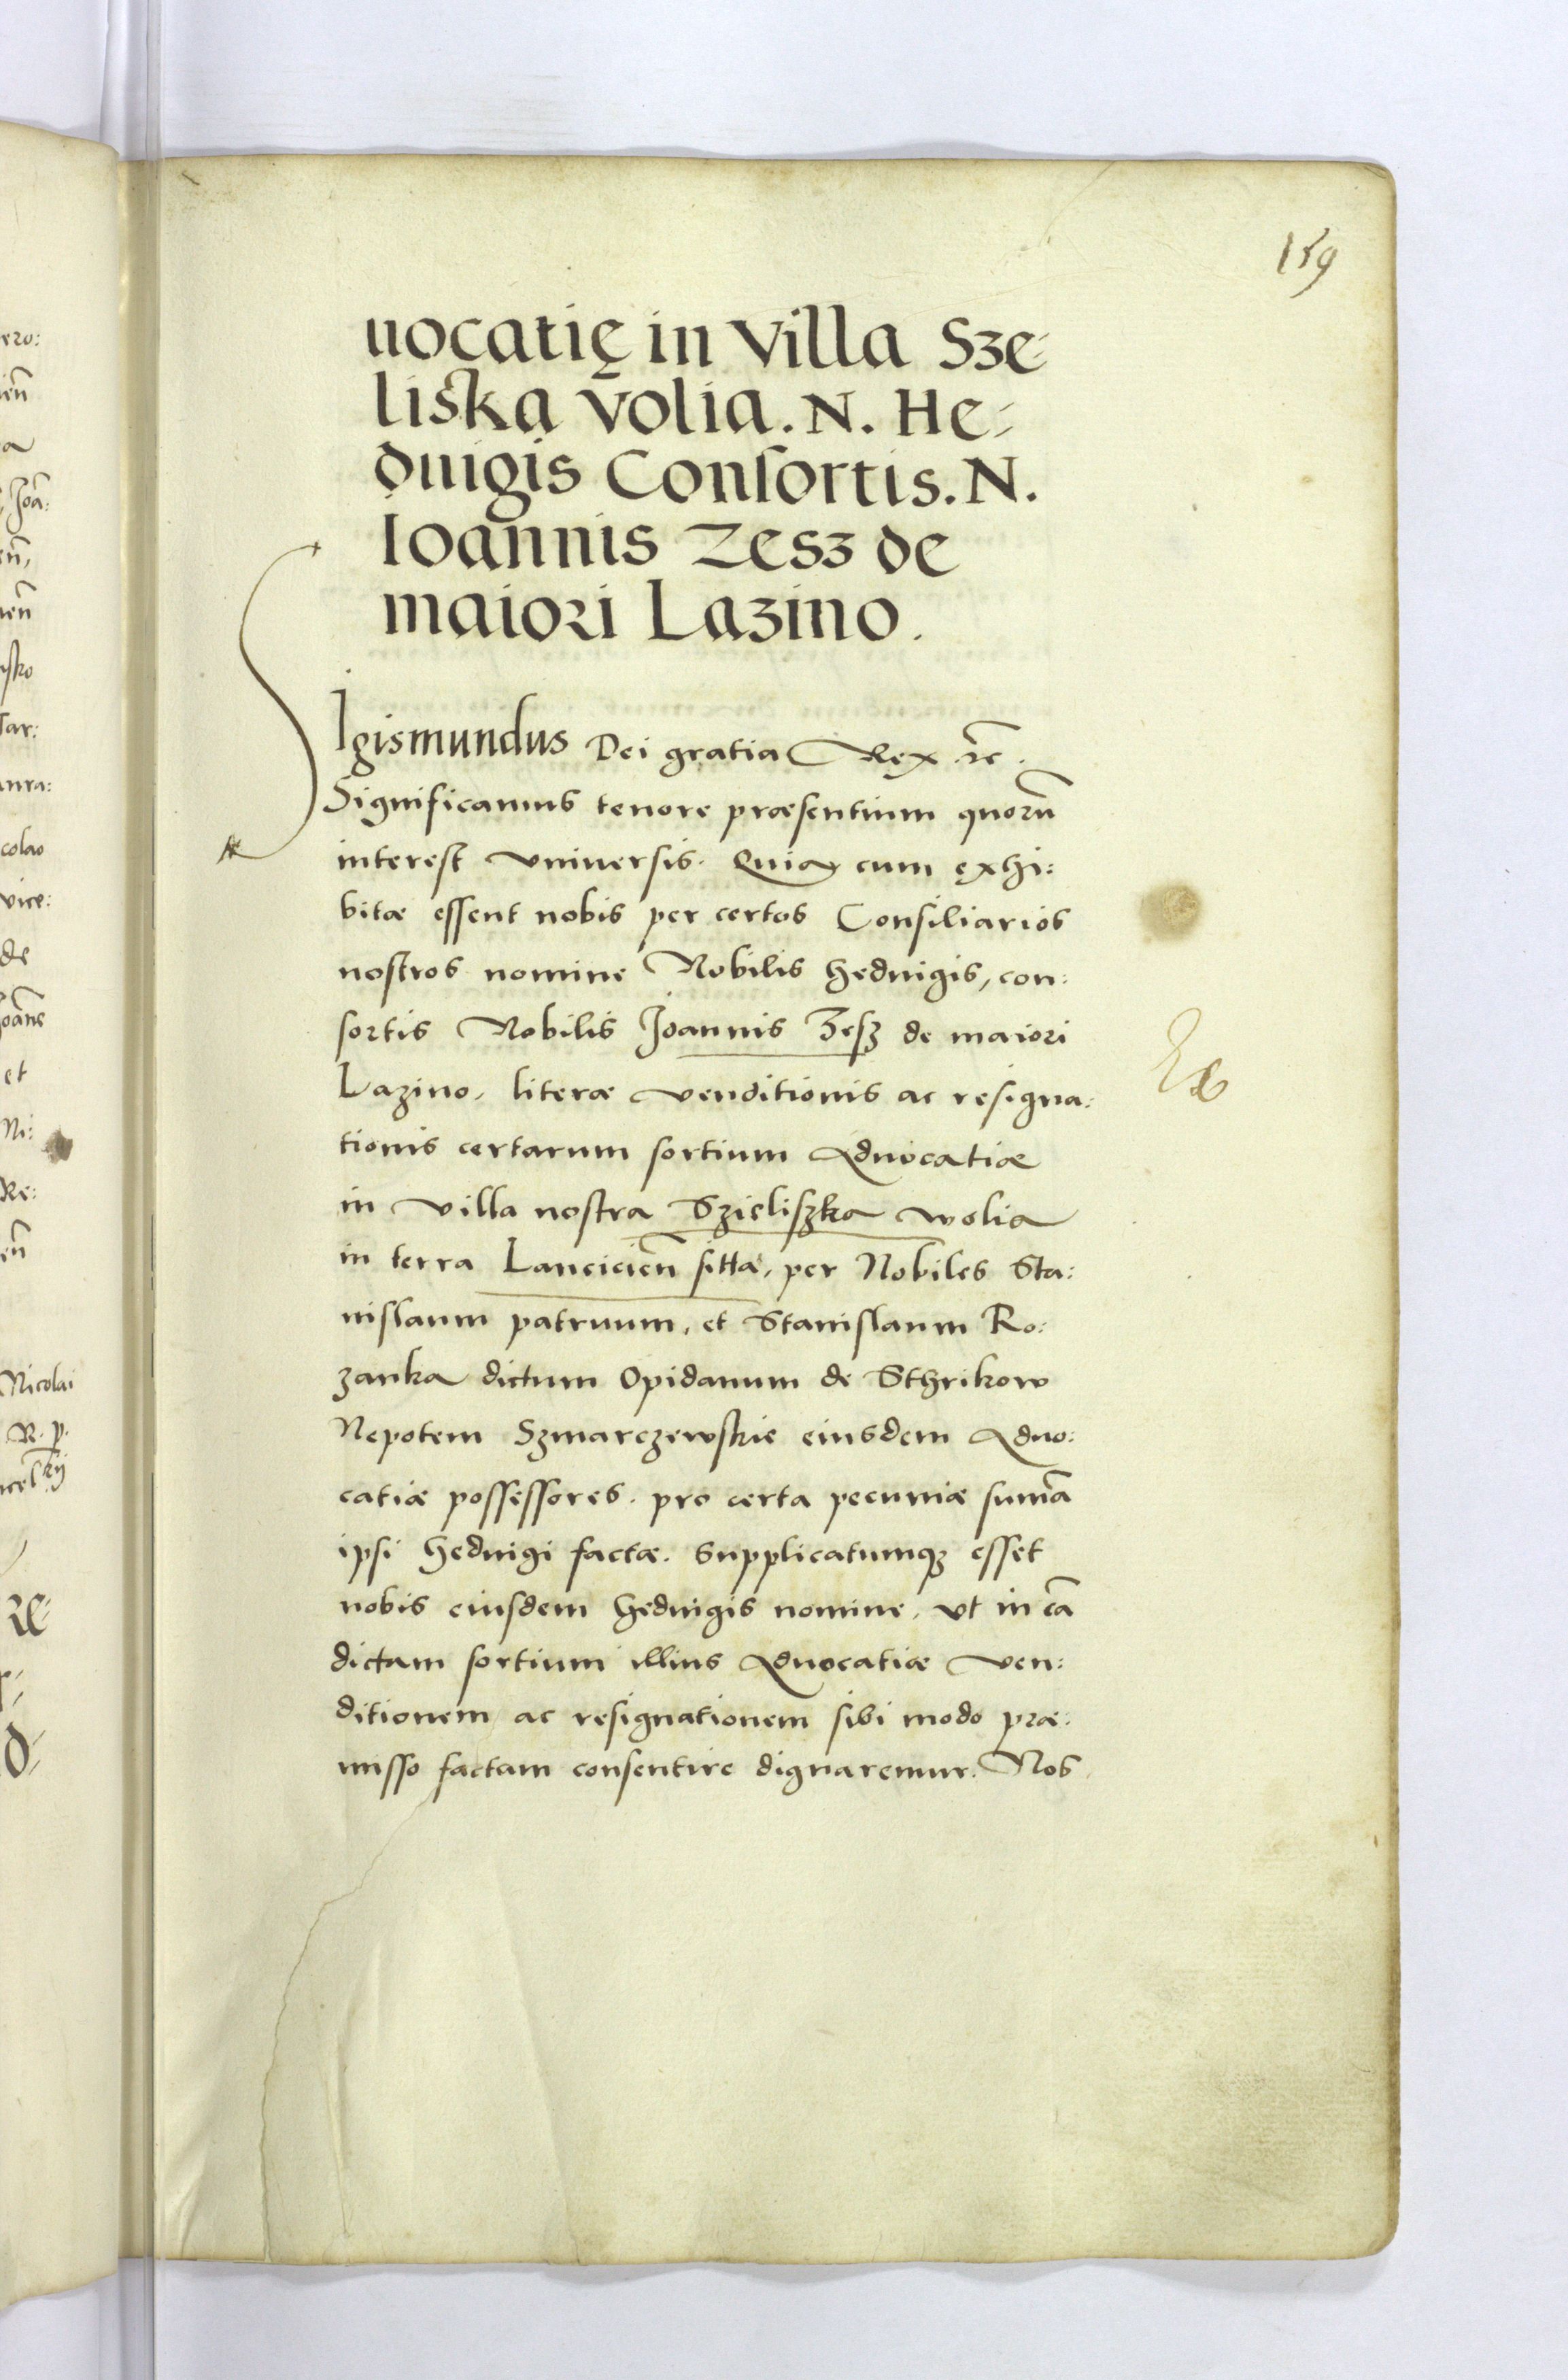 159
uocatię in Villa Sze-
liska volia. N. He-
duigis Consortis. N.
Ioannis Zesz de
maiori Lazino.
SIgismundus Dei gratia Rex etc.
Significamus tenore præsentium quorū
interest vniuersis. Quia cum exhi:
bitæ essent nobis per certos Consiliarios
nostros nomine Nobilis Heduigis, con:
sortis Nobilis Joannis Zesz de maiori
Lazino, literæ venditionis ac resigna:
tionis certarum sortium Aduocatiæ
in villa nostra Szieliszka wolia
in terra Lanciciēn sitta, per Nobiles Sta:
nislaum patruum, et Stanislaum Ro:
zanka dictum Opidanum de Sthrikow
Nepotem Szmarczewskie eiusdem Aduo:
catiæ possessores. pro certa pecuniæ sumā
ipsi Heduigi factæ. Supplicatumq3 esset
nobis eiusdem Heduigis nomine, vt in eā
dictam sortium illius Aduocatiæ ven:
ditionem ac resignationem sibi modo præ:
misso factam consentire dignaremur. Nos